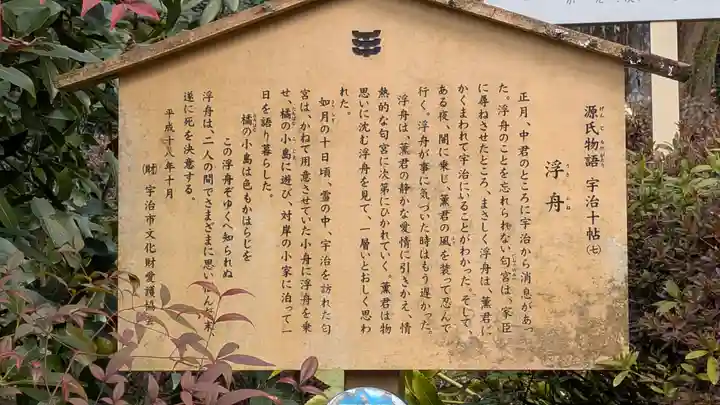 源氏物語 宇治十帖(七)
げんじものがたり
浮舟
うきふね
正月、中君のところに宇治から消息があっ
た。浮舟のことを忘れられない匂宮は、家臣
に尋ねさせたところ、まさしく浮舟は、薫君に
かくまわれて宇治にいることがわかった。そして、
ある夜、闇に乗じ、薫君の風を装って忍んで
行く。浮舟が事に気づいた時はもう遅かった。
浮舟は、薫君の静かな愛情に引きかえ、情
熱的な匂宮に次第にひかれていく。薫君は物
思いに沈む浮舟を見て、一層いとおしく思わ
れた。
如月の十日頃、雪の中、宇治を訪れた匂
宮は、かねて用意させていた小舟に浮舟を乗
せ、橘の小島に遊び、対岸の小家に泊って一
日を語り暮らした。
橘の小島は色もかはらじを
この浮舟ぞゆくへ知られぬ
浮舟は、二人の間でさまざまに思い
遂に死を決意する。
平成十八年十月
(財)宇治市文化財愛護協会